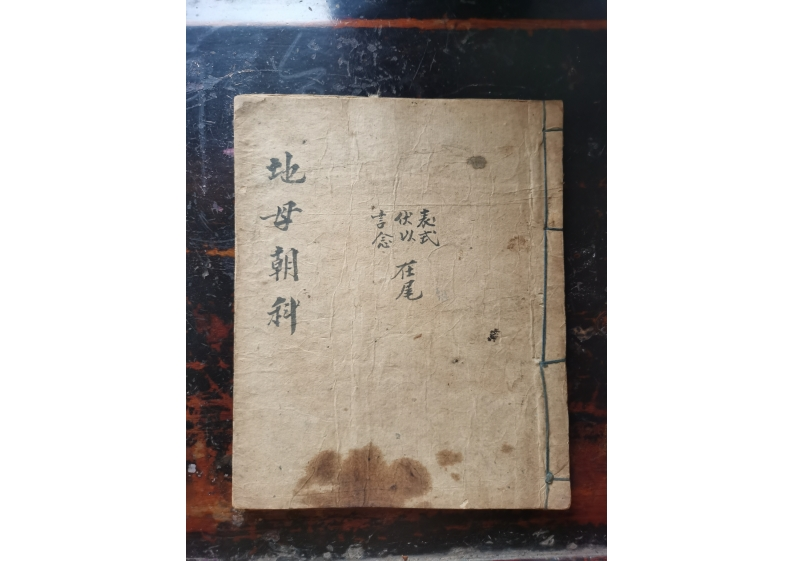 表式
伏以 在尾
言念
地母朝科